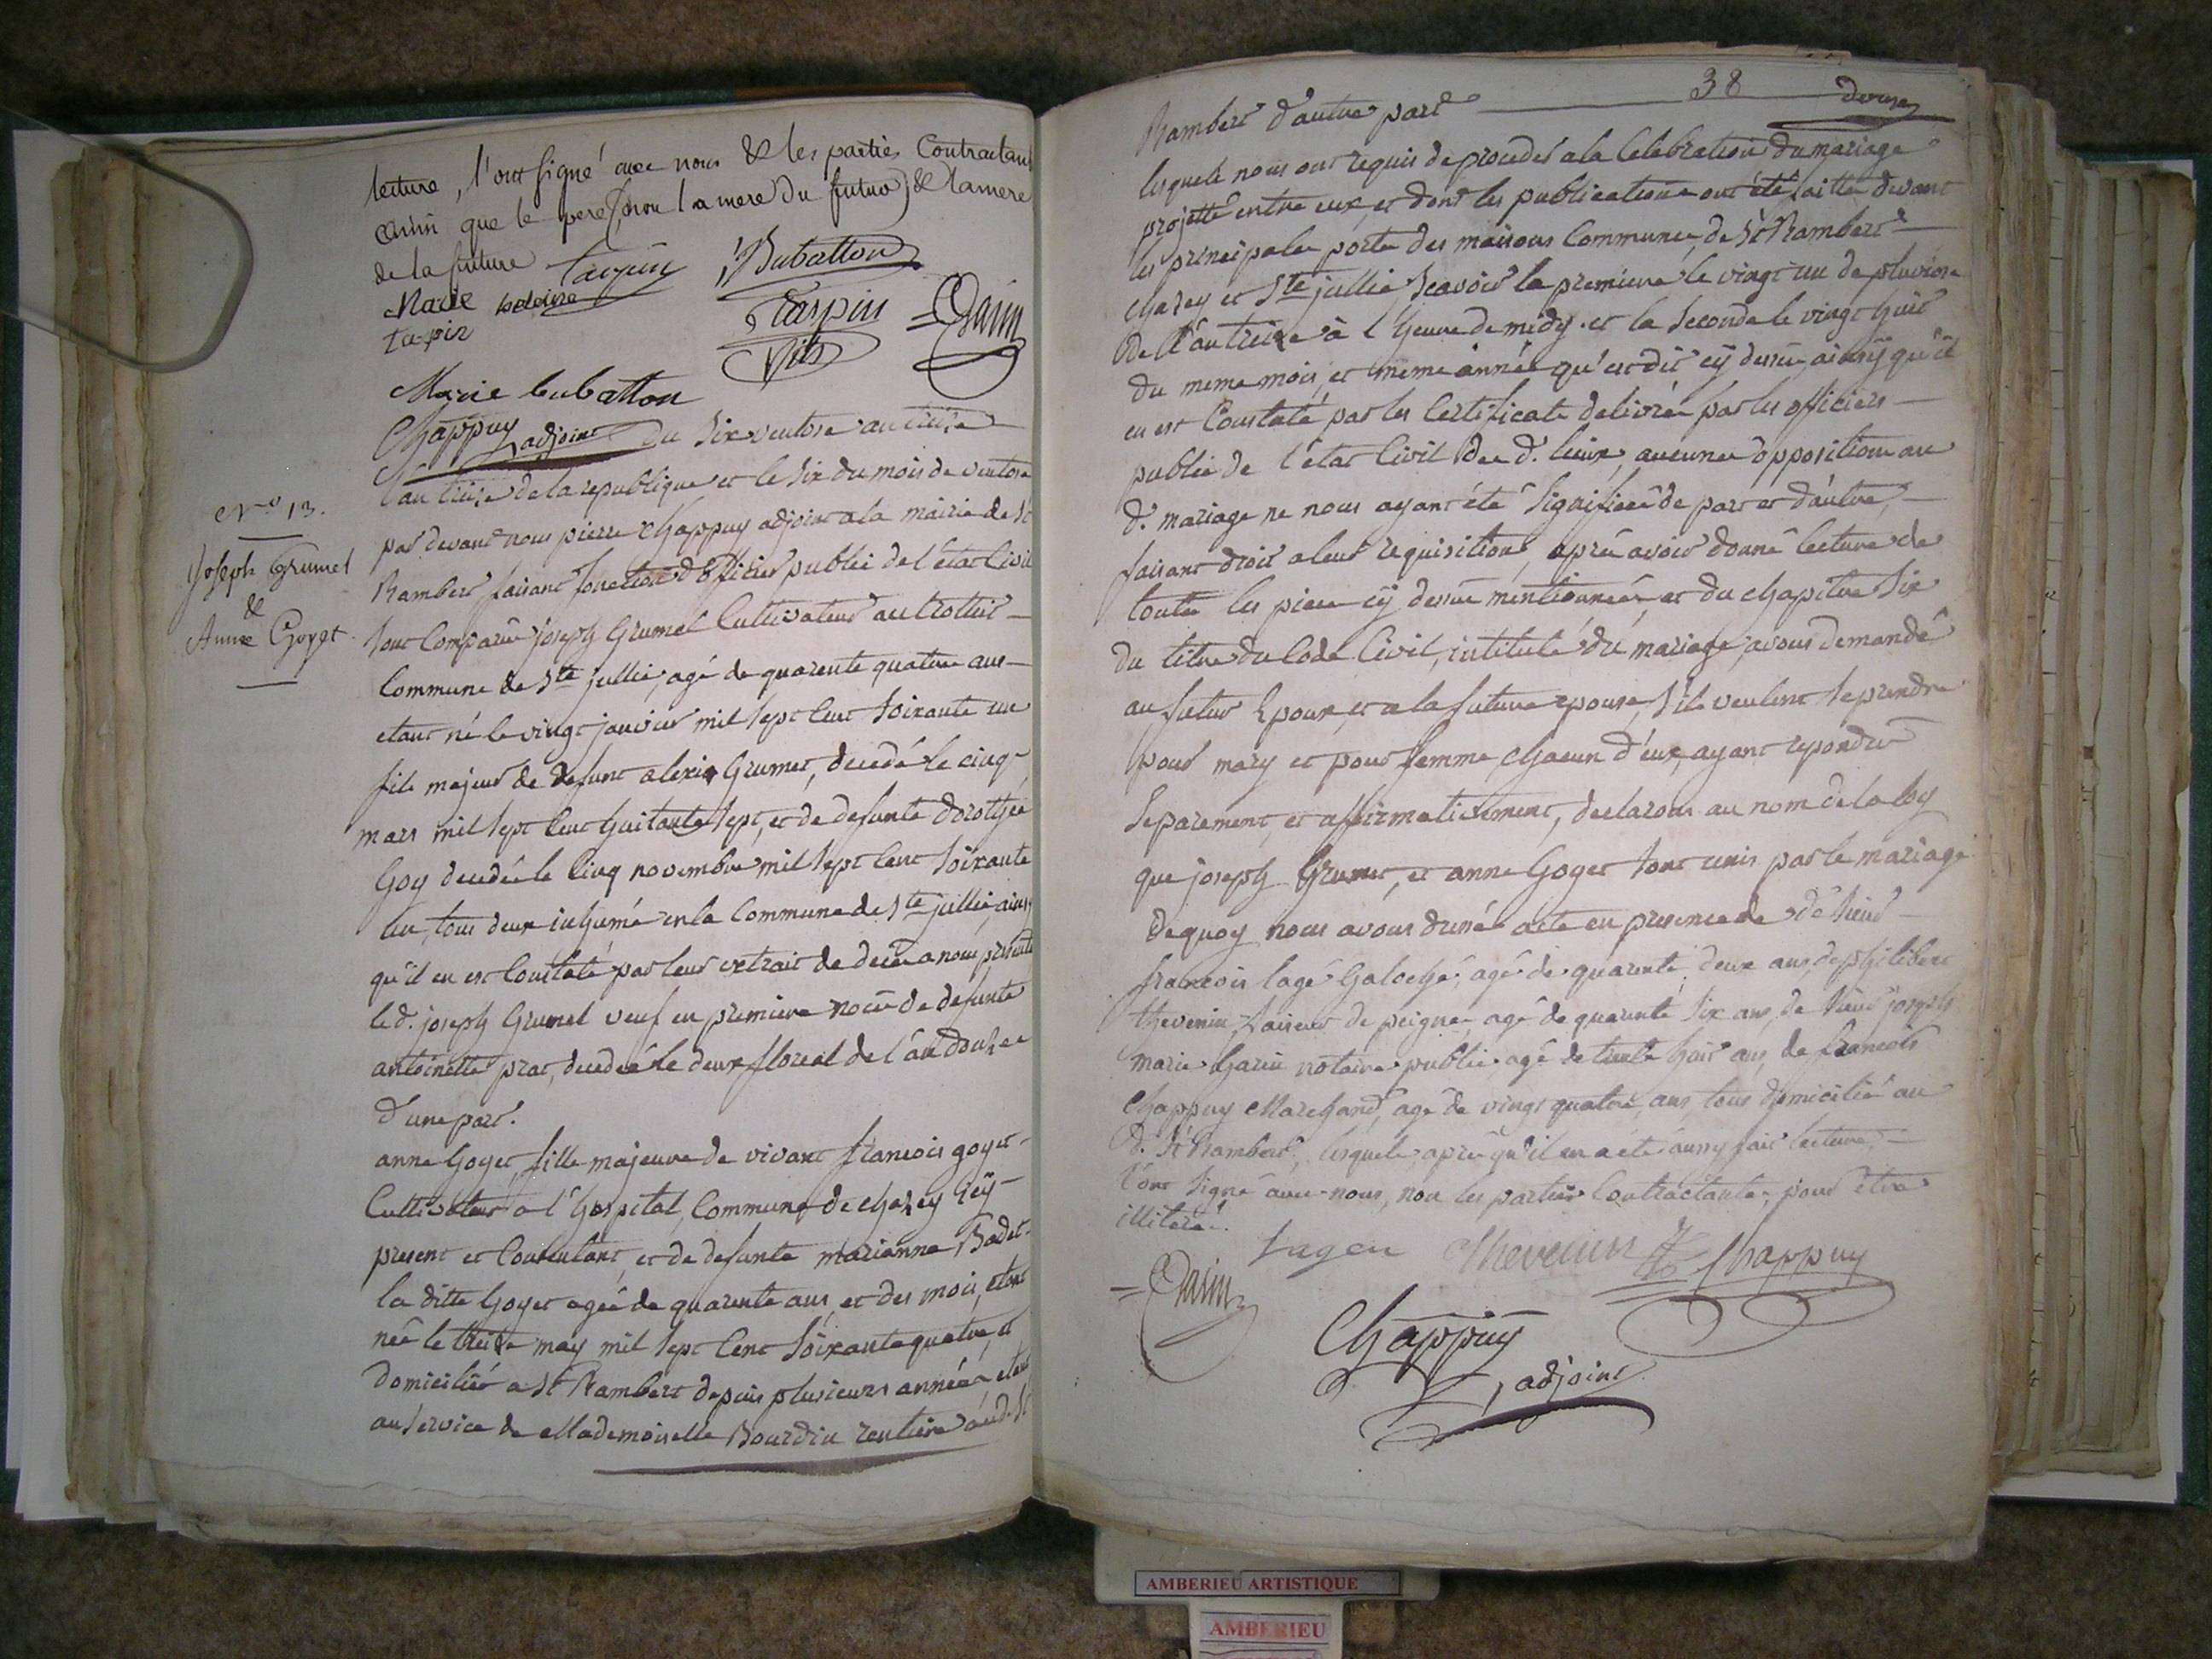 lecture, l'ont signé avec nous & les parties Contractant
ainsi que le pere (, non la mere du futur) & la mere
de la future tarpin J Bubatton
Marie
tarpin
Tarpin fils
Marie bubatton
Chappuy adjoint du Six ventose an treize
N.o 13.
Joseph Grumet
&
Anne Goyet.
L'an treize de la republique et le Six du mois de ventose
par devant nous pierre Chappuy adjoint a la mairie de St
Rambert faisant fonction d'officier public de l'état Civil
sont Comparus joseph Grumet Cultivateur au trottier
Commune de Ste jullie, agé de quarente quatre ans
etant né le vingt janvier mil sept Cent Soixante un
fils majeur de defunt alexis Grumet, decedé le cinq
mars mil sept Cent huitante sept, et de defunte dorothée
Goy decedée le Cinq novembre mil sept Cent Soixante
un, tous deux inhumés en la Commune de Ste jullie, ainsy
qu'il en est Constaté par leur extrait de decès a nous présenté
led. joseph Grumet veuf en premiere noce de defunte
antoinette prat, decedée le deux floreal de l'an douze
d'une part.
anne Goyet, fille majeure de vivant francois goyet
Cultivateur a l'hospital, Commune de chazey icÿ
present et Consentant, et de defunte marianne Badet
la ditte Goyet agée de quarente ans et des mois, etant
née le treize may mil sept Cent Soixante quatre, et
domiciliée a St Rambert depuis plusieurs années, etant
au service de Mademoiselle Bourdin rentiere aud. St
38
Rambert d'autre part
lesquels nous ont requis de proceder a la Celebration du mariage
projetté entre eux, et dont les publications ont été faittes devant
les principales portes des maisons Communes, de St Rambert
chazey et Ste jullie Scavoir la premiere le vingt un de pluviose
de l'an treize à l'heure de midy. et la Seconde le vingt huit
du meme mois, et même année qu'est dit cÿ dessus, ainsÿ qu'il
en est Constaté par les Certificats delivrés par les officiers
public de l'état Civil des d. lieux, aucunes oppositions au
d. mariage ne nous ayant été Signifiées de part et d'autre,
faisant droit a leur requisition, après avoir donné lecture de
toutes les pieces cÿ dessus mentionnées, et du chapitre Six
du titre du Code Civil, intitulé du mariage, avons demandé
au futur Epoux, et a la future epouse, S'ils veulent se prendre
pour mary et pour femme, chacun d'eux, ayant repondu
Separement, et affirmativement, declarons au nom de la loy
que joseph Grumet, et anne Goyet Sont unis par le mariage
de quoy nous avons dressé acte en presence de Sieur
francois lagé Galoché, agé de quarente deux ans, de philibert
thevenin faiseur de peignes, agé de quarente Six ans, de Sieur joseph
marie Garin notaire public, agé de trente huit ans, de francois
Chappuy Marchand, agé de vingt quatre ans, tous domiciliés au
d. St Rambert, lesquels, après qu'il en a été aussy fait lecture,
l'ont Signé avec nous, non les parties Contractantes, pour être
illiterés.
Thevenin Chappuy
Chappuy
adjoint
AMBERIEU ARTISTIQUE
AMBERIEU